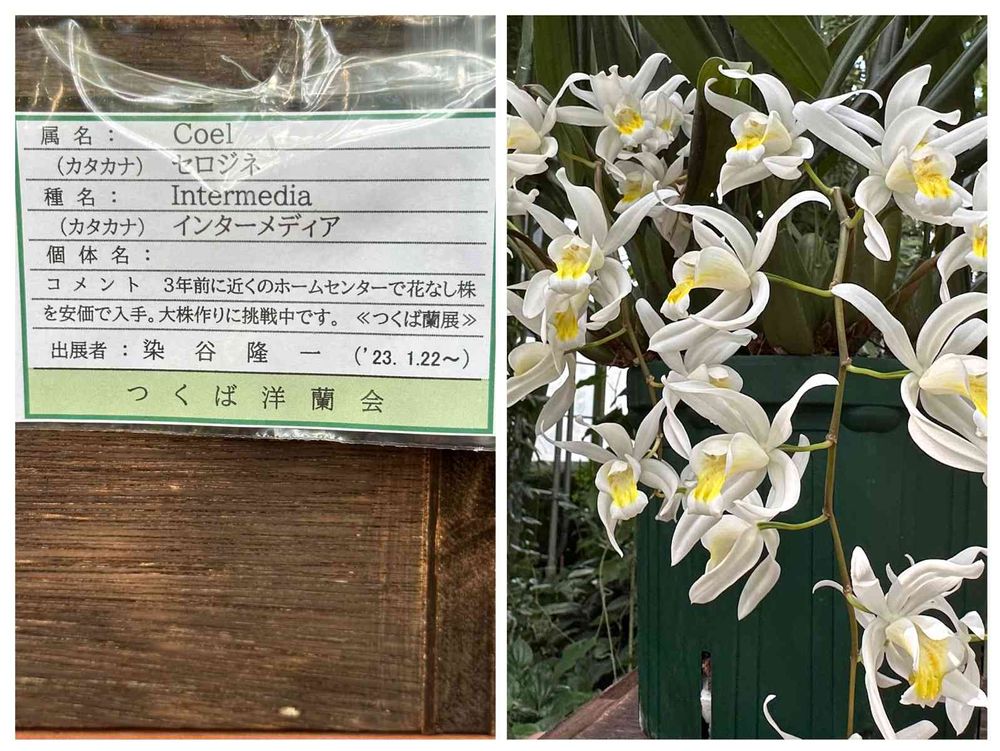 属名： Coel
（カタカナ） セロジネ
種名： Intermedia
（カタカナ） インターメディア
個体名：
コメント 3年前に近くのホームセンターで花なし株
を安価で入手。大株作りに挑戦中です。 ≪つくば蘭展≫
出展者：染谷隆一 （'23. 1.22～）
つくば洋蘭会